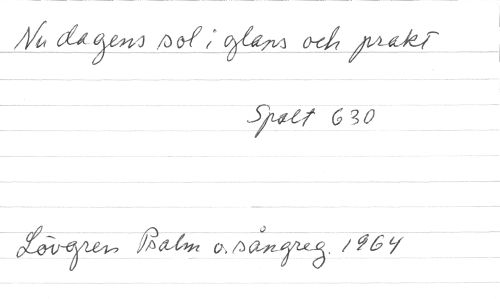 Nu dagens sol i glans och prakt
Spalt 630
Lövgren Psalm o. sångreg. 1964